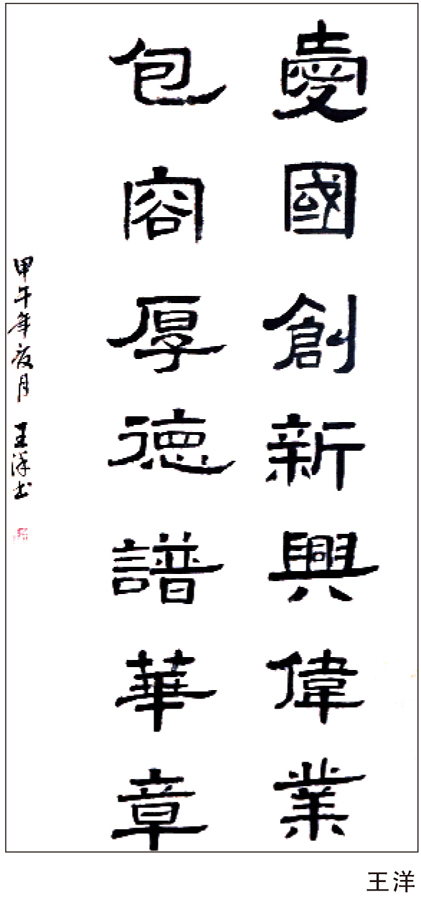 愛國創新興偉業
包容厚德譜華章
甲午年夜月 王洋书
王洋